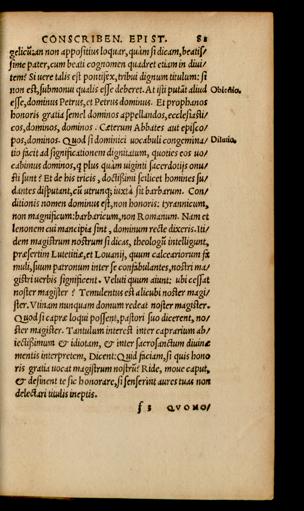 CONSCRIBEN. EPIST. 81
gelicũ:an non appositius loquar, quàm si dicam, beatis/
sime pater, cum beati cognomen quadret etiam in diui/
tem? Si uere talis est pontifex, tribui dignum titulum: si
non est, submonui qualis esse deberet. At isti putãt aliud
esse, dominus Petrus, et Petrus dominus. Et prophanos
honoris gratia semel dominos appellandos, ecclesiasti/
cos, dominos, dominos. Cæterum Abbates aut episco/
pos, dominos. Quod si dominici uocabuli congemina/
tio facit ad significationem dignitatum, quoties eos uo/
cabimus dominos, q̃ plus quàm uiginti sacerdotijs onu/
sti sunt? Et de his tricis, doctissimi scilicet homines su/
dantes disputant, cũ utrunq; iuxtà sit barbarum. Con/
ditionis nomen dominus est, non honoris: tyrannicum,
non magnificum: barbaricum, non Romanum. Nam et
lenonem cui mancipia sint, dominum recte dixeris. Iti/
dem magistrum nostrum si dicas, theologũ intelligunt,
præsertim Lutetiæ, et Louanij, quum calceariorum fa
muli, suum patronum inter se confabulantes, nostri ma/
gistri uerbis significent. Veluti quum aiunt: ubi cessat
noster magister? Temulentus est alicubi noster magi/
ster. Vtinam nunquam domum redeat noster magister.
Quod si capræ loqui possent, pastori suo dicerent, no/
ster magister. Tantulum interest inter caprarium ab/
iectissimum & idiotam, & inter sacrosanctum diuinæ
mentis interpretem, Dicent: Quid faciam, si quis hono
ris gratia uocat magistrum nostrũ? Ride, moue caput,
& desinent te sic honorare, si senserint aures tuas non
delectari titulis ineptis.
f 3 QVOMO/
Obiectio.
Dilutio.